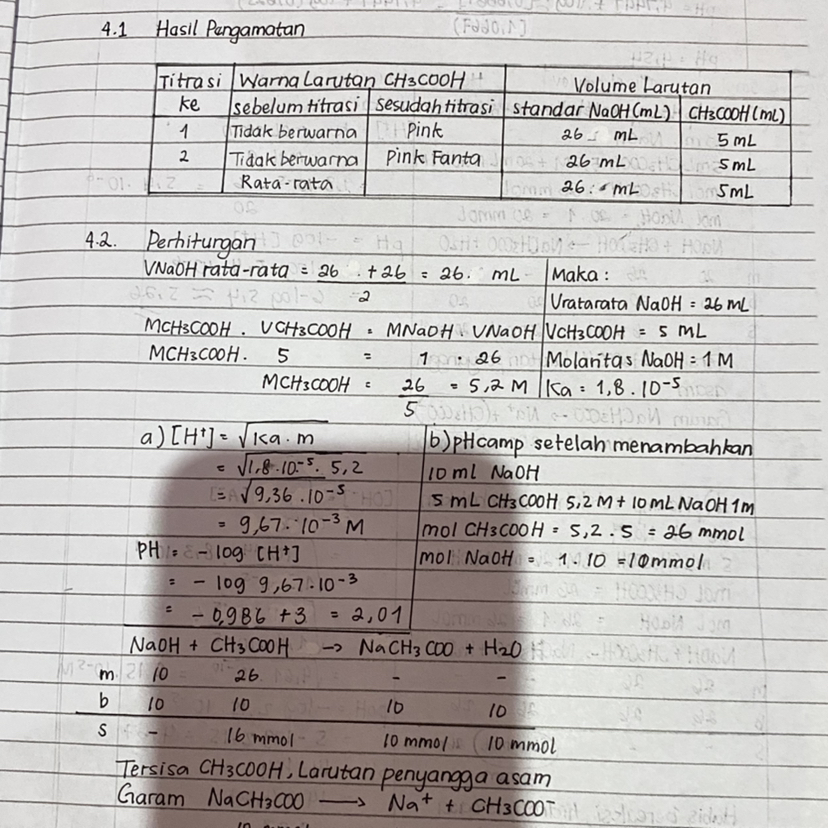 4.1 Hasil Pengamatan
Titrasi ke | Warna Larutan CH3COOH | Volume Larutan
sebelum titrasi | sesudah titrasi | standar NaOH (mL) | CH3COOH (mL)
1 | Tidak berwarna | Pink | 26 mL | 5 mL
2 | Tidak berwarna | Pink Fanta | 26 mL | 5 mL
Rata-rata | 26 mL | 5 mL
4.2. Perhitungan
VNaOH rata-rata = 26 + 26 / 2 = 26. mL
Maka :
Vratarata NaOH = 26 mL
MCH3COOH . VCH3COOH = MNaOH . VNaOH
VCH3COOH = 5 mL
MCH3COOH . 5 = 1 . 26
Molaritas NaOH = 1 M
MCH3COOH = 26 / 5 = 5,2 M
Ka = 1,8 . 10⁻⁵
a) [H⁺] = √Ka . m
= √1,8 . 10⁻⁵ . 5,2
= √9,36 . 10⁻⁵
= 9,67 . 10⁻³ M
PH = - log [H⁺]
= - log 9,67 . 10⁻³
= - 0,986 + 3 = 2,01
b) pHcamp setelah menambahkan
10 ml NaOH
5 mL CH3COOH 5,2 M + 10 mL NaOH 1 M
mol CH3COOH = 5,2 . 5 = 26 mmol
mol NaOH = 1 . 10 = 10 mmol
NaOH + CH3COOH → NaCH3COO + H2O
m 10 26 - -
b 10 10 10 10
s - 16 mmol 10 mmol 10 mmol
Tersisa CH3COOH, Larutan penyangga asam
Garam NaCH3COO → Na⁺ + CH3COO⁻